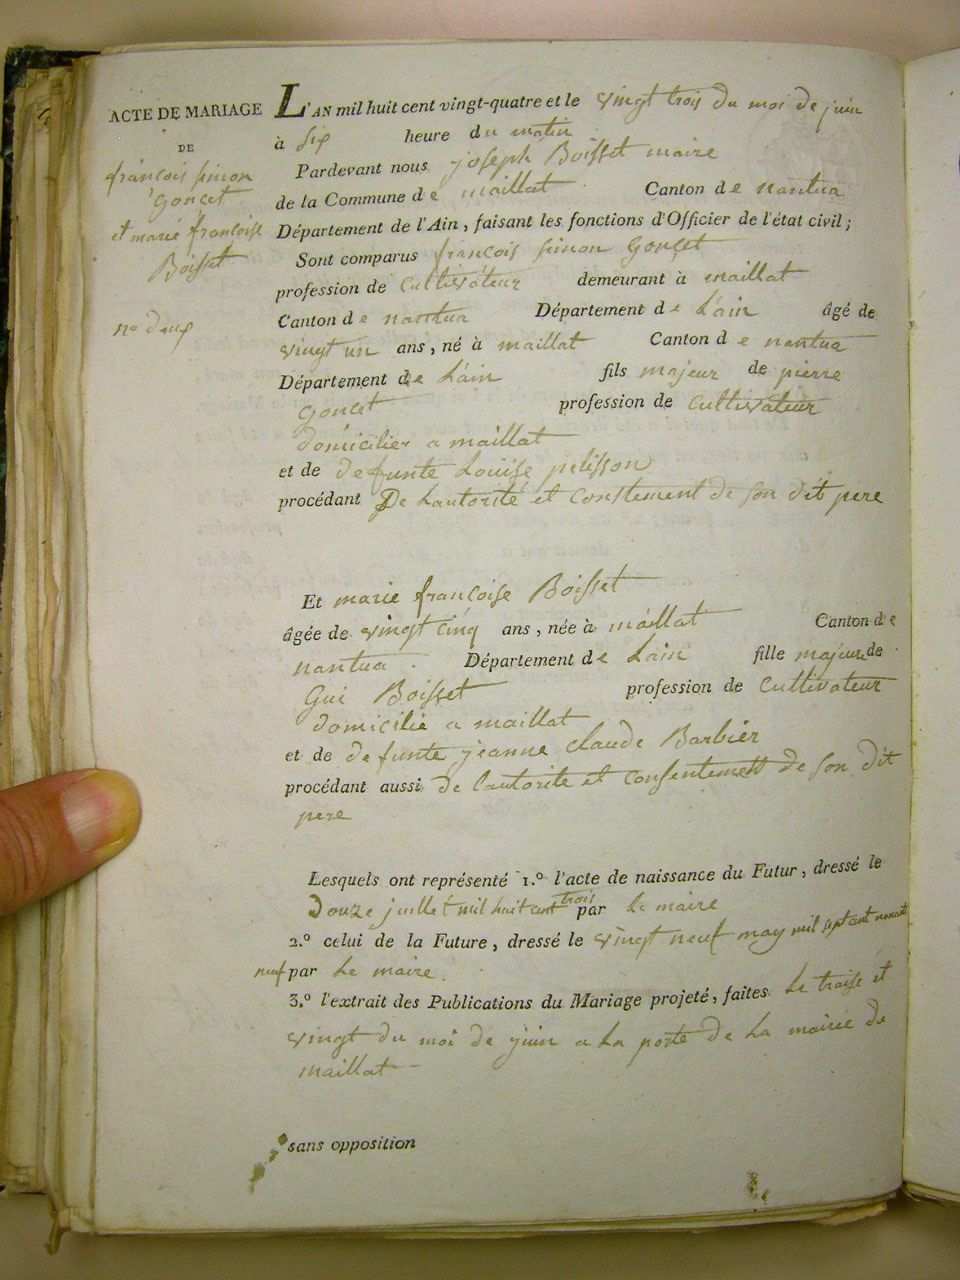 ACTE DE MARIAGE
DE
françois simon
Goncet
et marie françoise
Boisset
no deux
L'AN mil huit cent vingt-quatre et le vingt trois du mois de juin
à six heure du matin
Pardevant nous joseph Boisset maire
de la Commune de maillat Canton de nantua
Département de l'Ain, faisant les fonctions d'Officier de l'état civil;
Sont comparus françois simon Goncet
profession de Cultivateur demeurant à maillat
Canton de nantua Département de L'ain âgé de
vingt un ans, né à maillat Canton de nantua
Département de L'ain fils majeur de pierre
Goncet profession de Cultivateur
domicilier a maillat
et de defunte Louise pelisson
procédant De Lautorité et Constement de son dit pere
Et marie françoise Boisset
âgée de vingt cinq ans, née à maillat Canton de
nantua. Département de Lain fille majeur de
Gui Boisset profession de Cultivateur
domicilié a maillat
et de defunte jeanne claude Barbier
procédant aussi de l'autorite et consentement de son dit
pere
Lesquels ont représenté 1.º l'acte de naissance du Futur, dressé le
Douze juillet mil huit cent trois par le maire
2.º celui de la Future, dressé le vingt neuf may mil sept cent nonante
neuf par Le maire.
3.º l'extrait des Publications du Mariage projeté, faites Le traise et
vingt du moi de juin a La porte de La mairie de
maillat
sans opposition